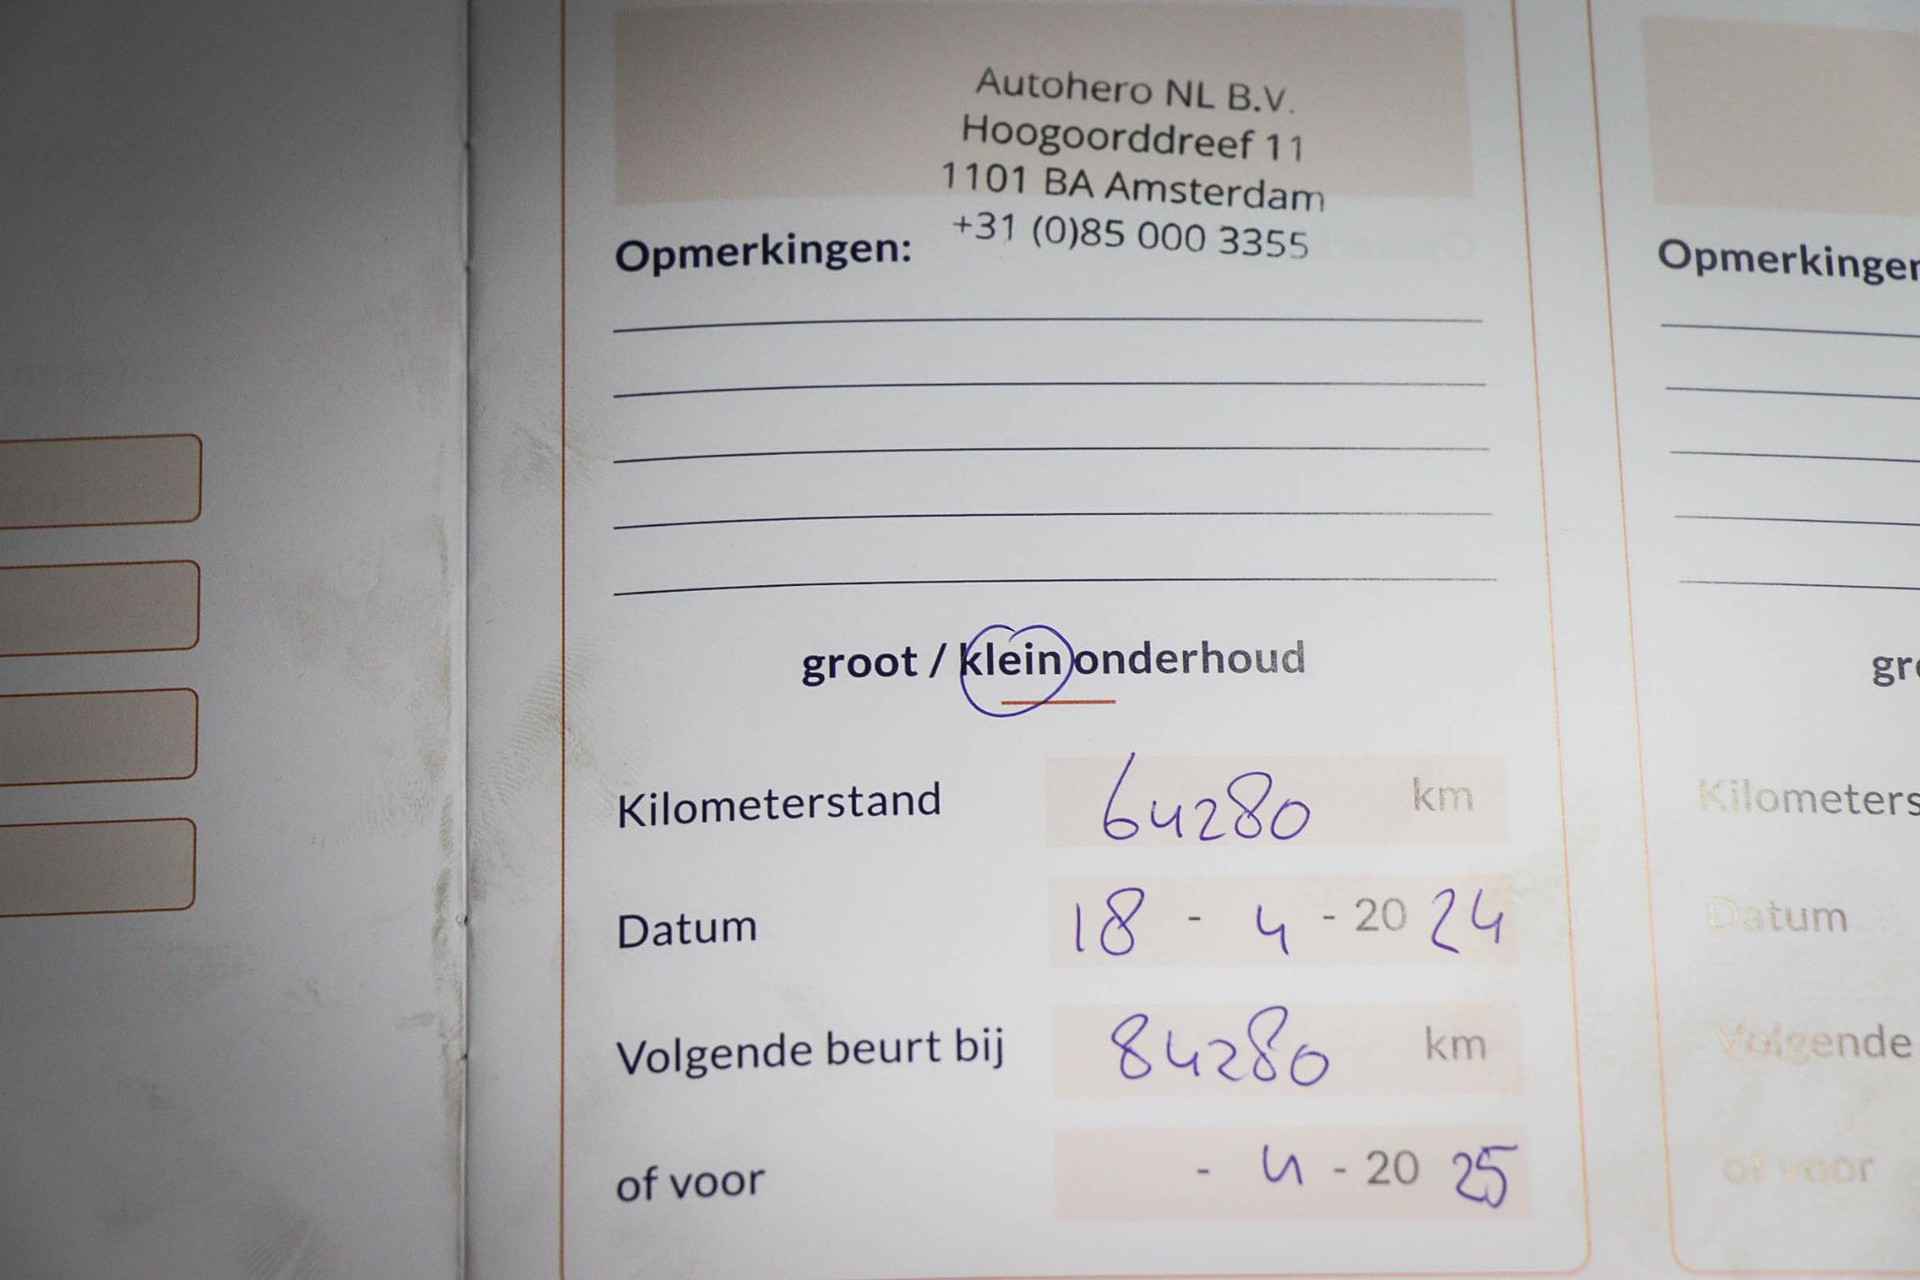 Autohero NL B.V.
Hoogoorddreef 11
1101 BA Amsterdam
+31 (0)85 000 3355
Opmerkingen:
groot / klein onderhoud
Kilometerstand 64280 km
Datum 18 - 4 - 20 24
Volgende beurt bij 84280 km
of voor - 4 - 20 25
Opmerkingen
gro
Kilometers
Datum
Volgende
of voor